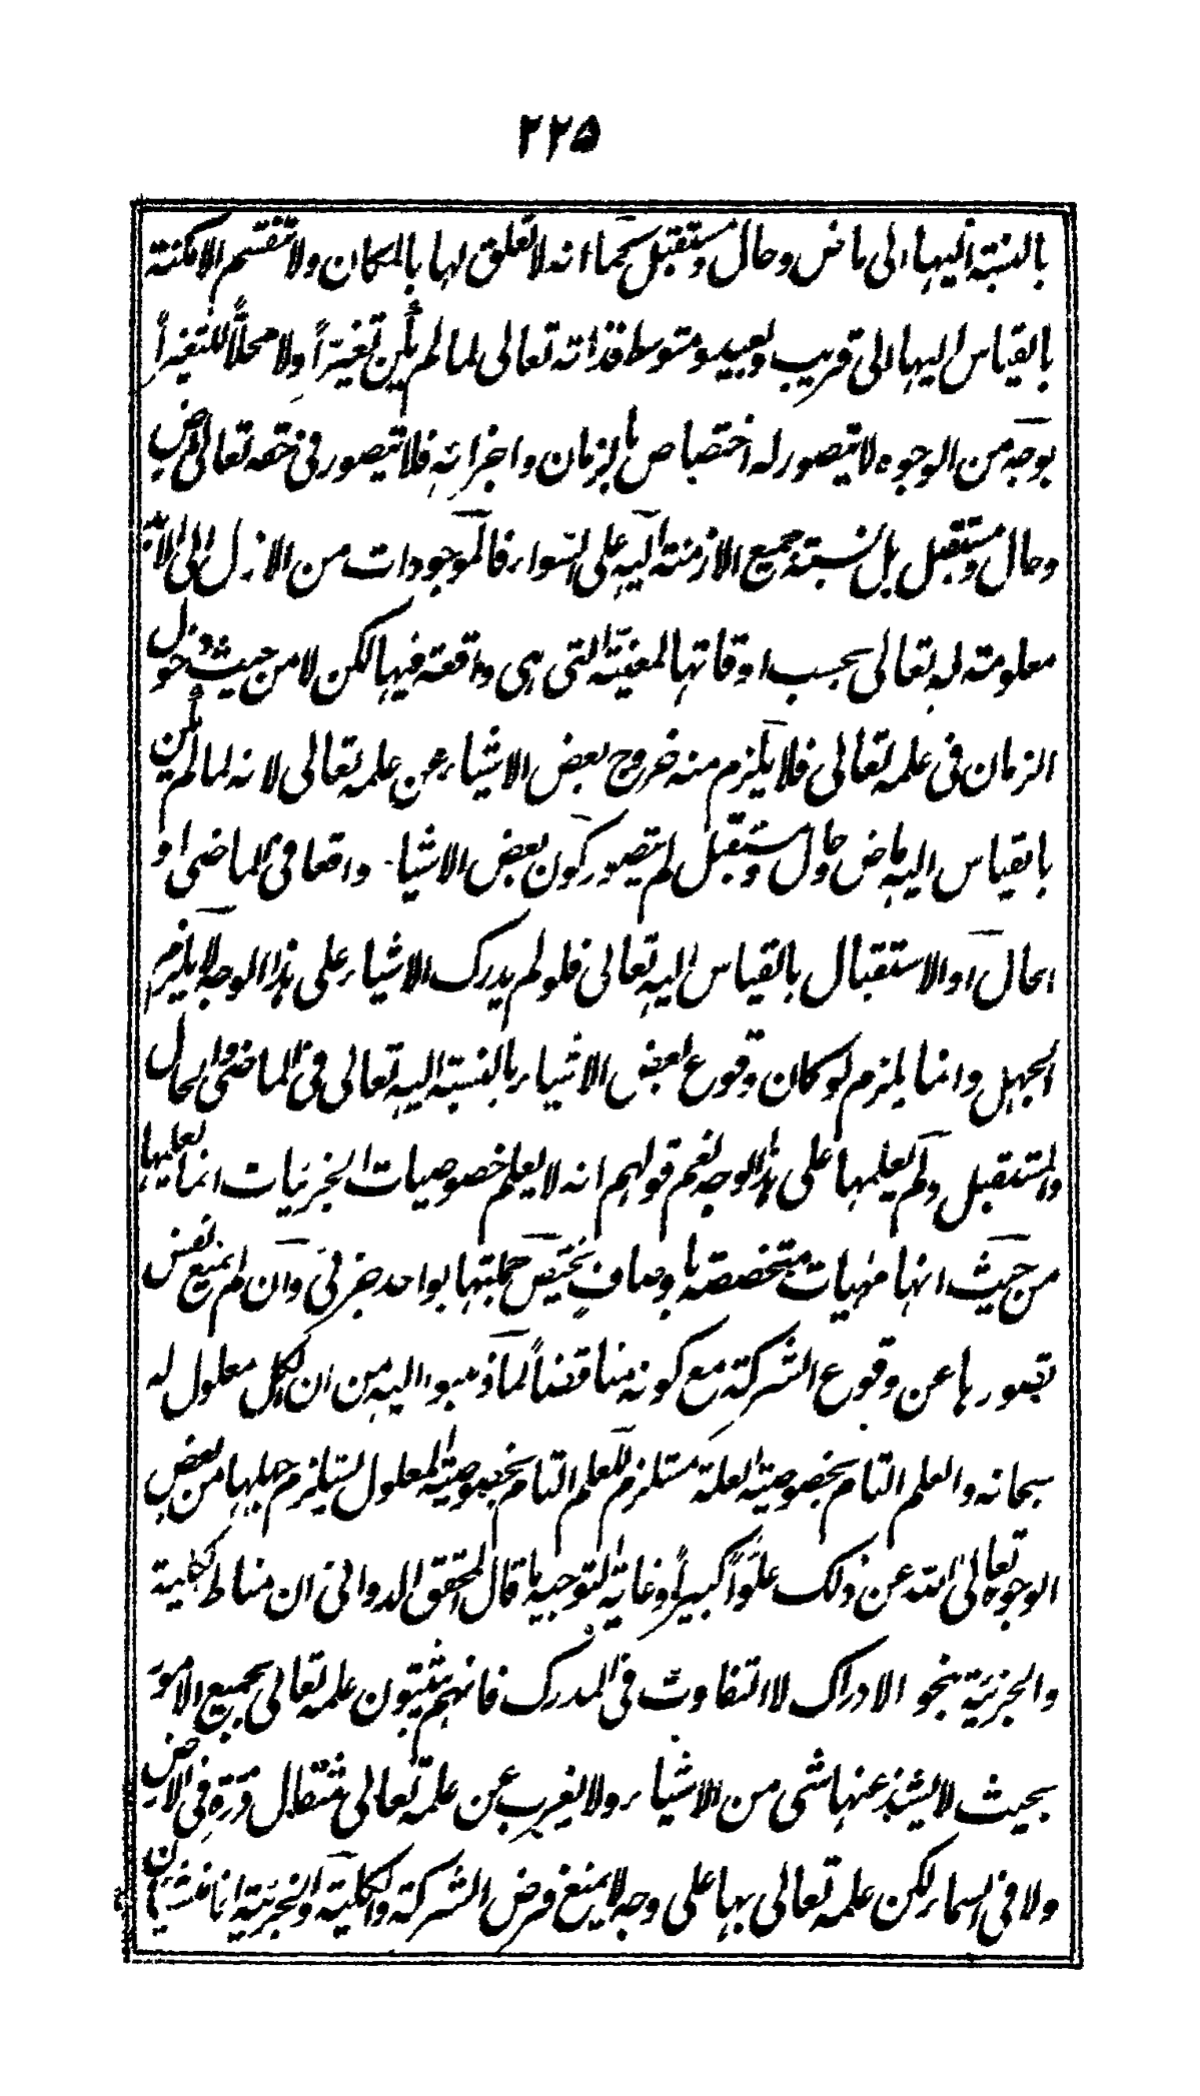 ٢٢٥
بالنسبة اليها الى ماض وحال ومستقبل كما انه لا تعلق لها بالمكان ولا تنقسم الامكنة
بالقياس اليها الى قريب وبعيد ومتوسط فذاته تعالى لما لم يكن تغيراً ولا محلاً للتغير أ
بوجه من الوجوه لا يتصور له اختصاص بالزمان واجزائه فلا يتصور في حقه تعالى ماض
وحال ومستقبل بل نسبة جميع الازمنة اليه على السواء فالموجودات من الازل الى الابد
معلومة له تعالى بحسب اوقاتها المعينة التي هي واقعة فيها لكن لا من حيث دخول
الزمان في علمه تعالى فلا يلزم منه خروج بعض الاشياء عن علمه تعالى لانه لما لم يكن
بالقياس اليه ماض وحال ومستقبل لم يتصور كون بعض الاشياء واقعا في الماضى او
الحال او الاستقبال بالقياس اليه تعالى فلو لم يدرك الاشياء على هذا الوجه لا يلزم
الجهل وانما يلزم لو كان وقوع بعض الاشياء بالنسبة اليه تعالى في الماضى والحال
والمستقبل ولم يعلمها على هذا الوجه نعم قولهم انه لا يعلم خصوصيات الجزئيات انما يعلمها
من حيث انها مهيات متخصصة باوصاف يختص جملتها بواحد جزئى وان لم يمنع نفس
تصورها عن وقوع الشركة مع كونه مناقضاً لما ذهبوا اليه من ان الكل معلول له
سبحانه والعلم التام بخصوصية العلة مستلزم للعلم التام بخصوصية المعلول يستلزم جهلها من بعض
الوجوه تعالى الله عن ذلك علواً كبيراً وغاية التوجيه ما قال المحقق الدوانى ان مناط الكلية
والجزئية نحو الادراك لا التفاوت في المدرك فانهم يثبتون علمه تعالى بجميع الامور
بحيث لا يشذ عنها شى من الاشياء ولا يعزب عن علمه تعالى مثقال ذرة في الارض
ولا في السماء لكن علمه تعالى بها على وجه لا يمنع فرض الشركة والكلية والجزئية انما ينشئان